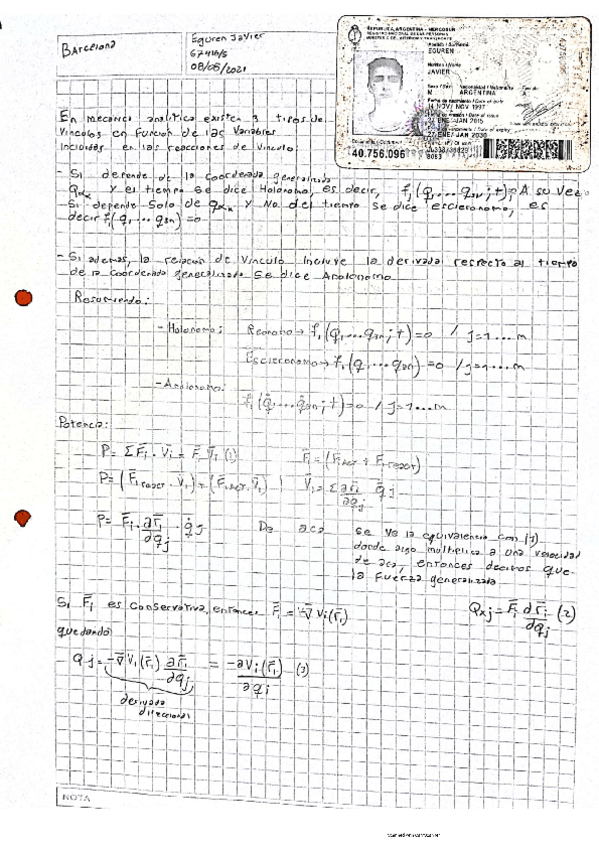 Barcelona
Eguren Javier
67416/5
08/05/2021
REPUBLICA ARGENTINA - MERCOSUR
REGISTRO NACIONAL DE LAS PERSONAS
MINISTERIO DEL INTERIOR Y TRANSPORTE
Apellido / Surname
EGUREN
Nombre / Name
JAVIER
Sexo / Sex Nacionalidad / Nationality
M ARGENTINA A
Fecha de nacimiento / Date of birth
14 NOV/ NOV 1997
Fecha de emisión / Date of issue
ENE/JAN 2015
Fecha de vencimiento / Date of expiry
ENE/JAN 2030
40.756.096
8083
En mecanica analitica existen 3 tipos de
Vinculos en funcion de las Variables
incluidas en las reacciones de vinculo:
- Si depende de la coordenada generalizada
y el tiempo se dice Holonomo, es decir, fj(q1...q3N;t)=0 A su vez
- Si depende Solo de y No del tiempo se dice escleronomo, es
decir fj(q1...q3N)=0
- Si ademas, la relacion de Vinculo incluye la derivada respecto al tiempo
de la coordenada generalizada Se dice Anolonomo
Resumiendo:
- Holonomo: Reonomo → fj(q1...q3N;t)=0 / j=1...m
Escleronomo → fj(q1...q3N)=0 / j=1...m
- Anolonomo:
fj(q̇1...q̇3N;t)=0 / j=1...m
Potencia:
P= ΣF̄i · V̄i = F̄i V̄i (1) F̄i=(F̄iact + F̄ireact)
P=(F̄ireact · V̄i)+(F̄iact · V̄i) V̄i=Σ∂r̄i/∂qj · q̇j
P= F̄i · ∂r̄i/∂qj · q̇j De aca se ve la equivalencia con (1)
donde algo multiplica a una velocidad
de aca, entonces decimos que
la Fuerza generalizada
Si F̄i es Conservativa, entonces F̄i = -∇̄ Vi(r̄i) Qxj = F̄i ∂r̄i/∂qj (2)
quedando
Qj= -∇̄ Vi(r̄i) ∂r̄i/∂qj = -∂Vi(r̄i)/∂qj (3)
derivada
direccional
NOTA